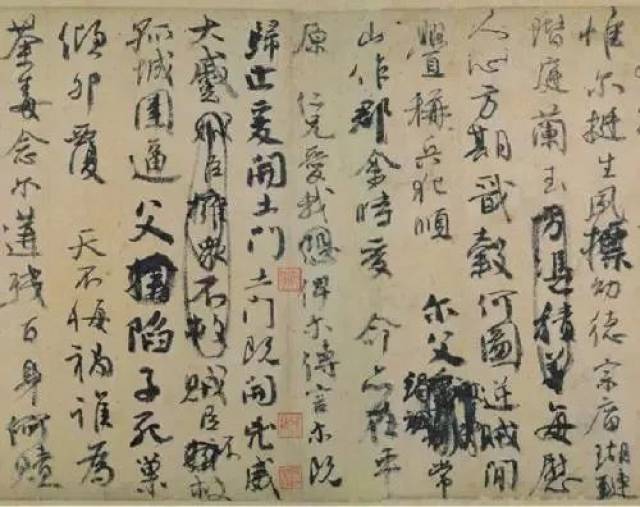 惟尔挺生夙標幼德宗廟瑚璉
階庭蘭玉方憑積善每慰
人心方期戩穀何圖逆賊間
釁稱兵犯順 尔父竭誠常
山作郡余時受 命亦在平
原 仁兄愛我恐俾尔傳言尔既
歸止爰開土門土門既開兇威
大蹙賊臣擁眾不救賊臣不救
孤城圍逼父陷子死巢
傾卵覆 天不悔禍誰為
荼毒念尔遘殘百身何贖